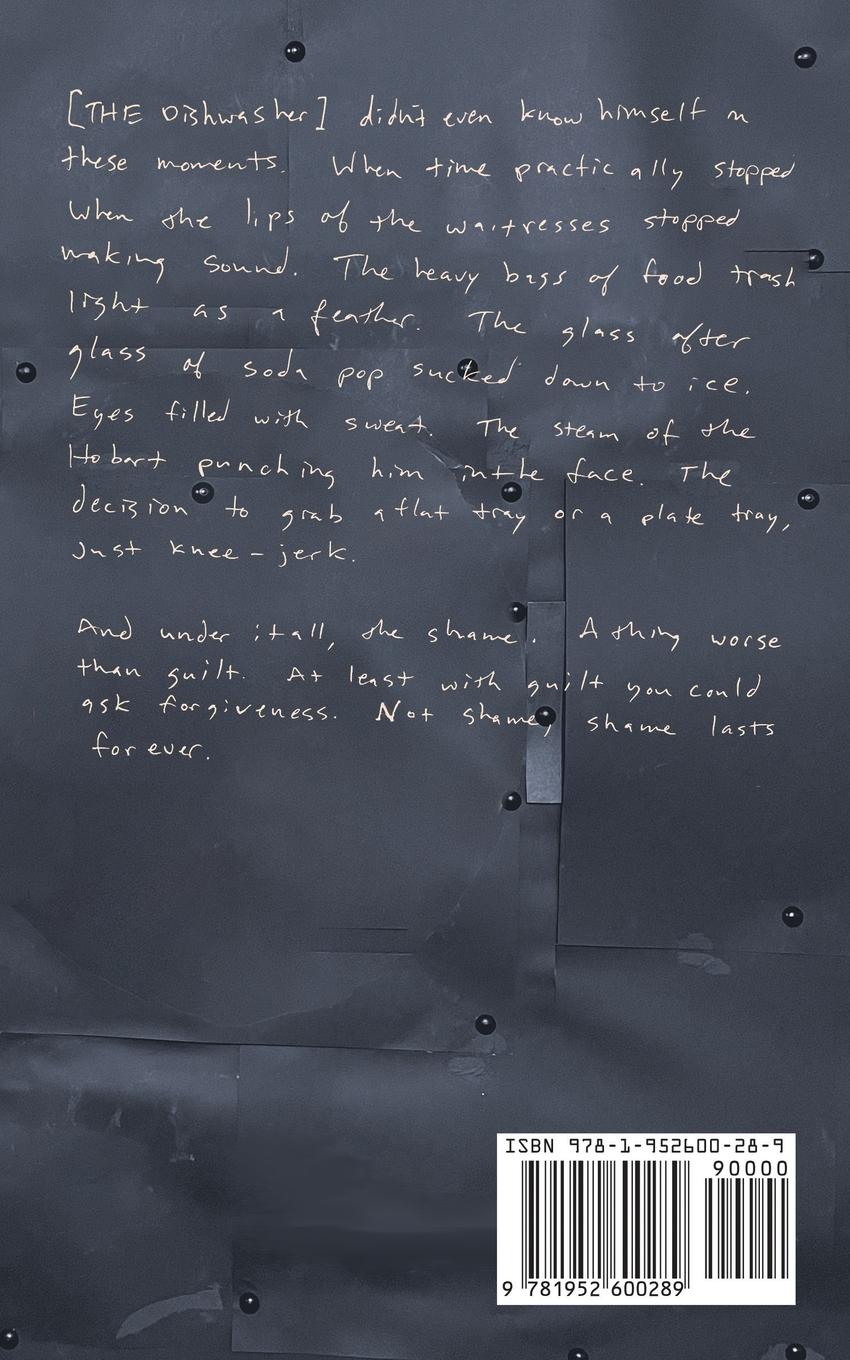 [THE Dishwasher] didn't even know himself in
these moments. When time practically stopped
When the lips of the waitresses stopped
making sound. The heavy bags of food trash
light as a feather. The glass after
glass of soda pop sucked down to ice.
Eyes filled with sweat. The steam of the
Hobart punching him in the face. The
decision to grab a flat tray or a plate tray,
Just knee-jerk.
And under it all, the shame. A thing worse
than guilt. At least with guilt you could
ask forgiveness. Not shame, shame lasts
forever.
ISBN 978-1-952600-28-9
90000
9 781952 600289